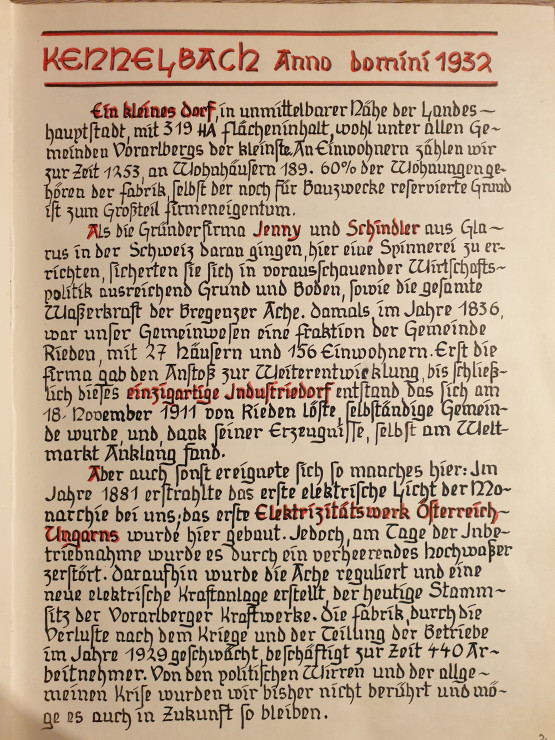 KENNELBACH Anno domini 1932
Ein kleines Dorf, in unmittelbarer Nähe der Landes-
hauptstadt, mit 319 HA Flächeninhalt, wohl unter allen Ge-
meinden Vorarlbergs der kleinste. An Einwohnern zählen wir
zur Zeit 1253, an Wohnhäusern 189. 60% der Wohnungen ge-
hören der Fabrik, selbst der noch für Bauzwecke reservierte Grund
ist zum Großteil Firmeneigentum.
Als die Gründerfirma Jenny und Schindler aus Gla-
rus in der Schweiz daran gingen, hier eine Spinnerei zu er-
richten, sicherten sie sich in vorausschauender Wirtschafts-
politik ausreichend Grund und Boden, sowie die gesamte
Waßerkraft der Bregenzer Ache. Damals, im Jahre 1836,
war unser Gemeinwesen eine Fraktion der Gemeinde
Rieden, mit 27 Häusern und 156 Einwohnern. Erst die
Firma gab den Anstoß zur Weiterentwicklung, bis schließ-
lich dieses einzigartige Industriedorf entstand, das sich am
18. November 1911 von Rieden löste, selbständige Gemein-
de wurde, und, dank seiner Erzeugnisse, selbst am Welt-
markt Anklang fand.
Aber auch sonst ereignete sich so manches hier: Im
Jahre 1881 erstrahlte das erste elektrische Licht der Mo-
narchie bei uns; das erste Elektrizitätswerk Österreich-
Ungarns wurde hier gebaut. Jedoch, am Tage der Inbe-
triebnahme wurde es durch ein verheerendes Hochwaßer
zerstört. Daraufhin wurde die Ache reguliert und eine
neue elektrische Kraftanlage erstellt, der heutige Stamm-
sitz der Vorarlberger Kraftwerke. Die Fabrik, durch die
Verluste nach dem Kriege und der Teilung der Betriebe
im Jahre 1929 geschwächt, beschäftigt zur Zeit 440 Ar-
beitnehmer. Von den politischen Wirren und der allge-
meinen Krise wurden wir bisher nicht berührt und mö-
ge es auch in Zukunft so bleiben.